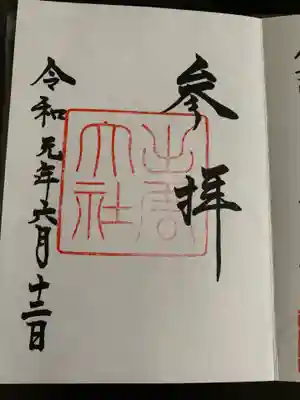 参拝
出雲大社
令和元年六月十二日